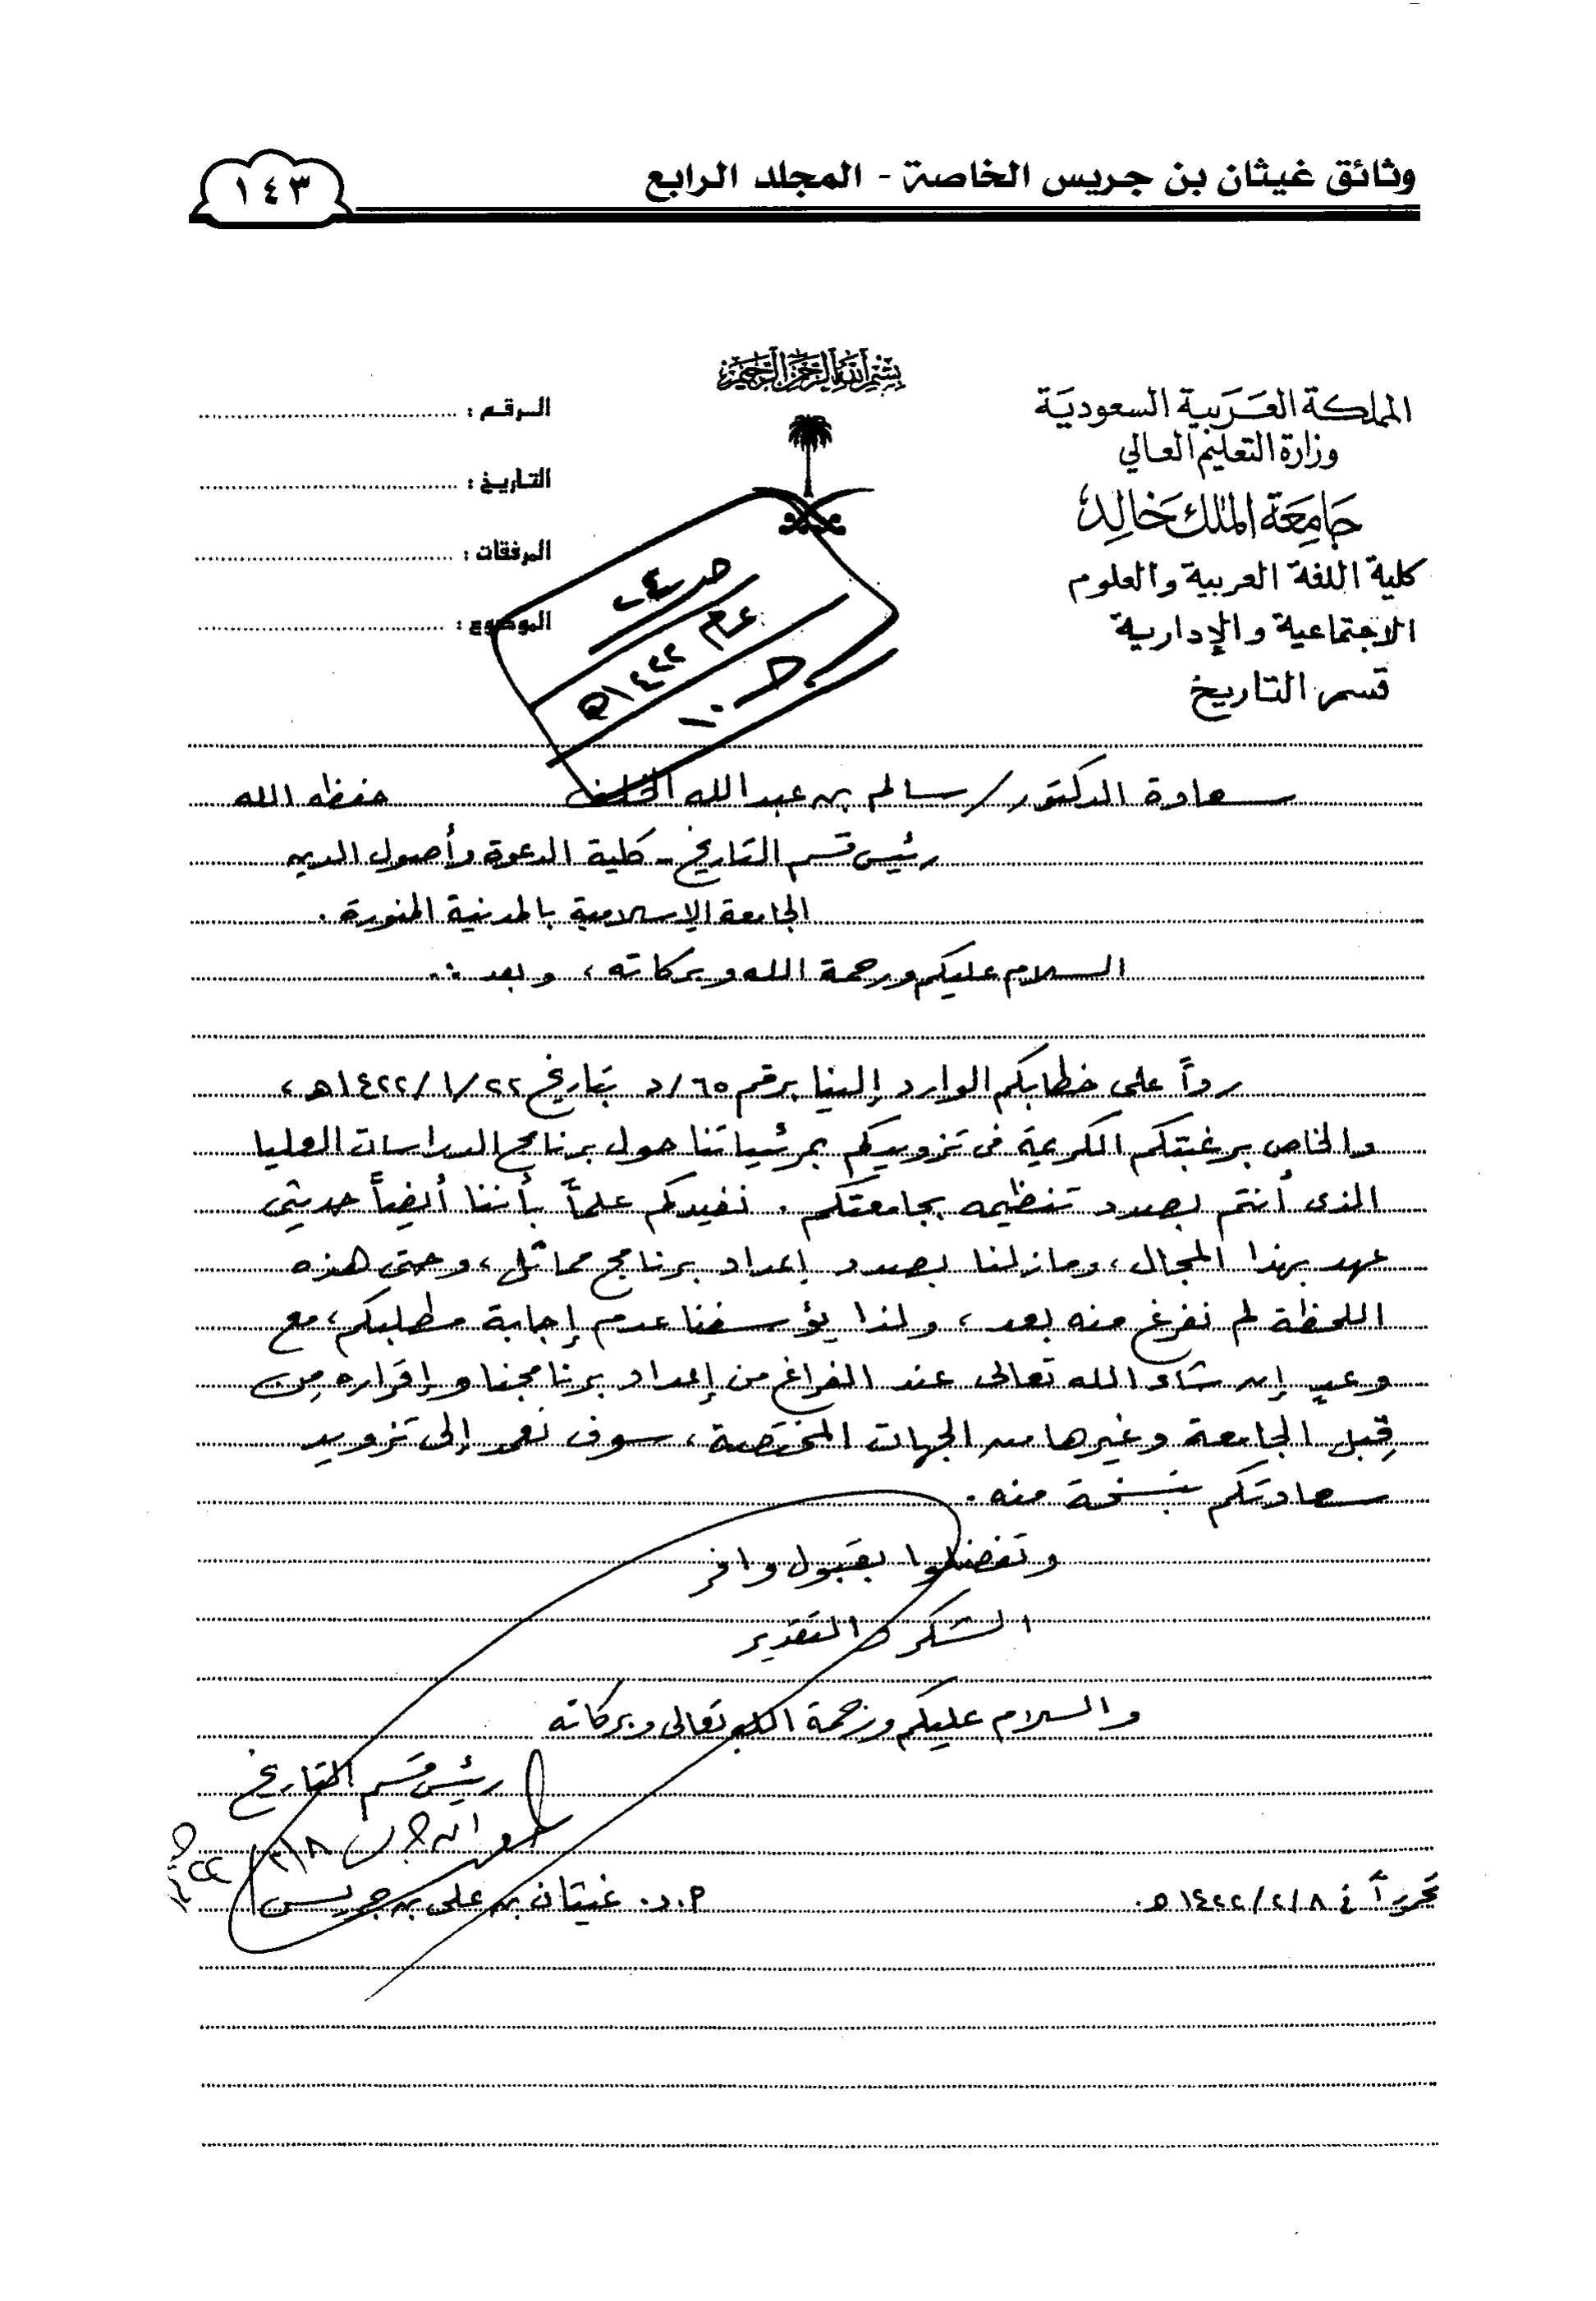 وثائق غيثان بن جريس الخاصة - المجلد الرابع
١٤٣
بسم الله الرحمن الرحيم
المملكة العربية السعودية
وزارة التعليم العالي
جامعة الملك خالد
كلية اللغة العربية والعلوم
الاجتماعية والإدارية
قسم التاريخ
الرقم :
التاريخ :
المرفقات :
الموضوع :
عام ١٤٢٢هـ
سعادة الدكتور / سالم بن عبدالله الخلف حفظه الله
رئيس قسم التاريخ - كلية الدعوة وأصول الدين
الجامعة الإسلامية بالمدينة المنورة .
السلام عليكم ورحمة الله وبركاته ، وبعد :.
رداً على خطابكم الوارد إلينا برقم ٦٥/د بتاريخ ١٤٢٢/١/٢٢هـ ،
والخاص برغبتكم الكريمة في تزويدكم بمرئياتنا حول برنامج الدراسات العليا
الذى أنتم بصدد تنظيمه بجامعتكم . نفيدكم علماً بأننا أيضاً حديثي
عهد بهذا المجال ، ومازلنا بصدد إعداد برنامج مماثل ، وحتى هذه
اللحظة لم نفرغ منه بعد ، ولذا يؤسفنا عدم إجابة مطلبكم ، مع
وعدٍ إن شاء الله تعالى عند الفراغ من إعداد برنامجنا وإقراره مِن
قِبل الجامعة وغيرها من الجهات المختصة ، سوف نعمد إلى تزويد
سعادتكم بنسخة منه .
وتفضلوا بقبول وافر
الشكر والتقدير
والسلام عليكم ورحمة الله تعالى وبركاته
رئيس قسم التاريخ
أ.د. غيثان بن علي بن جريس
تحريراً في ١٤٢٢/٢/٨هـ.